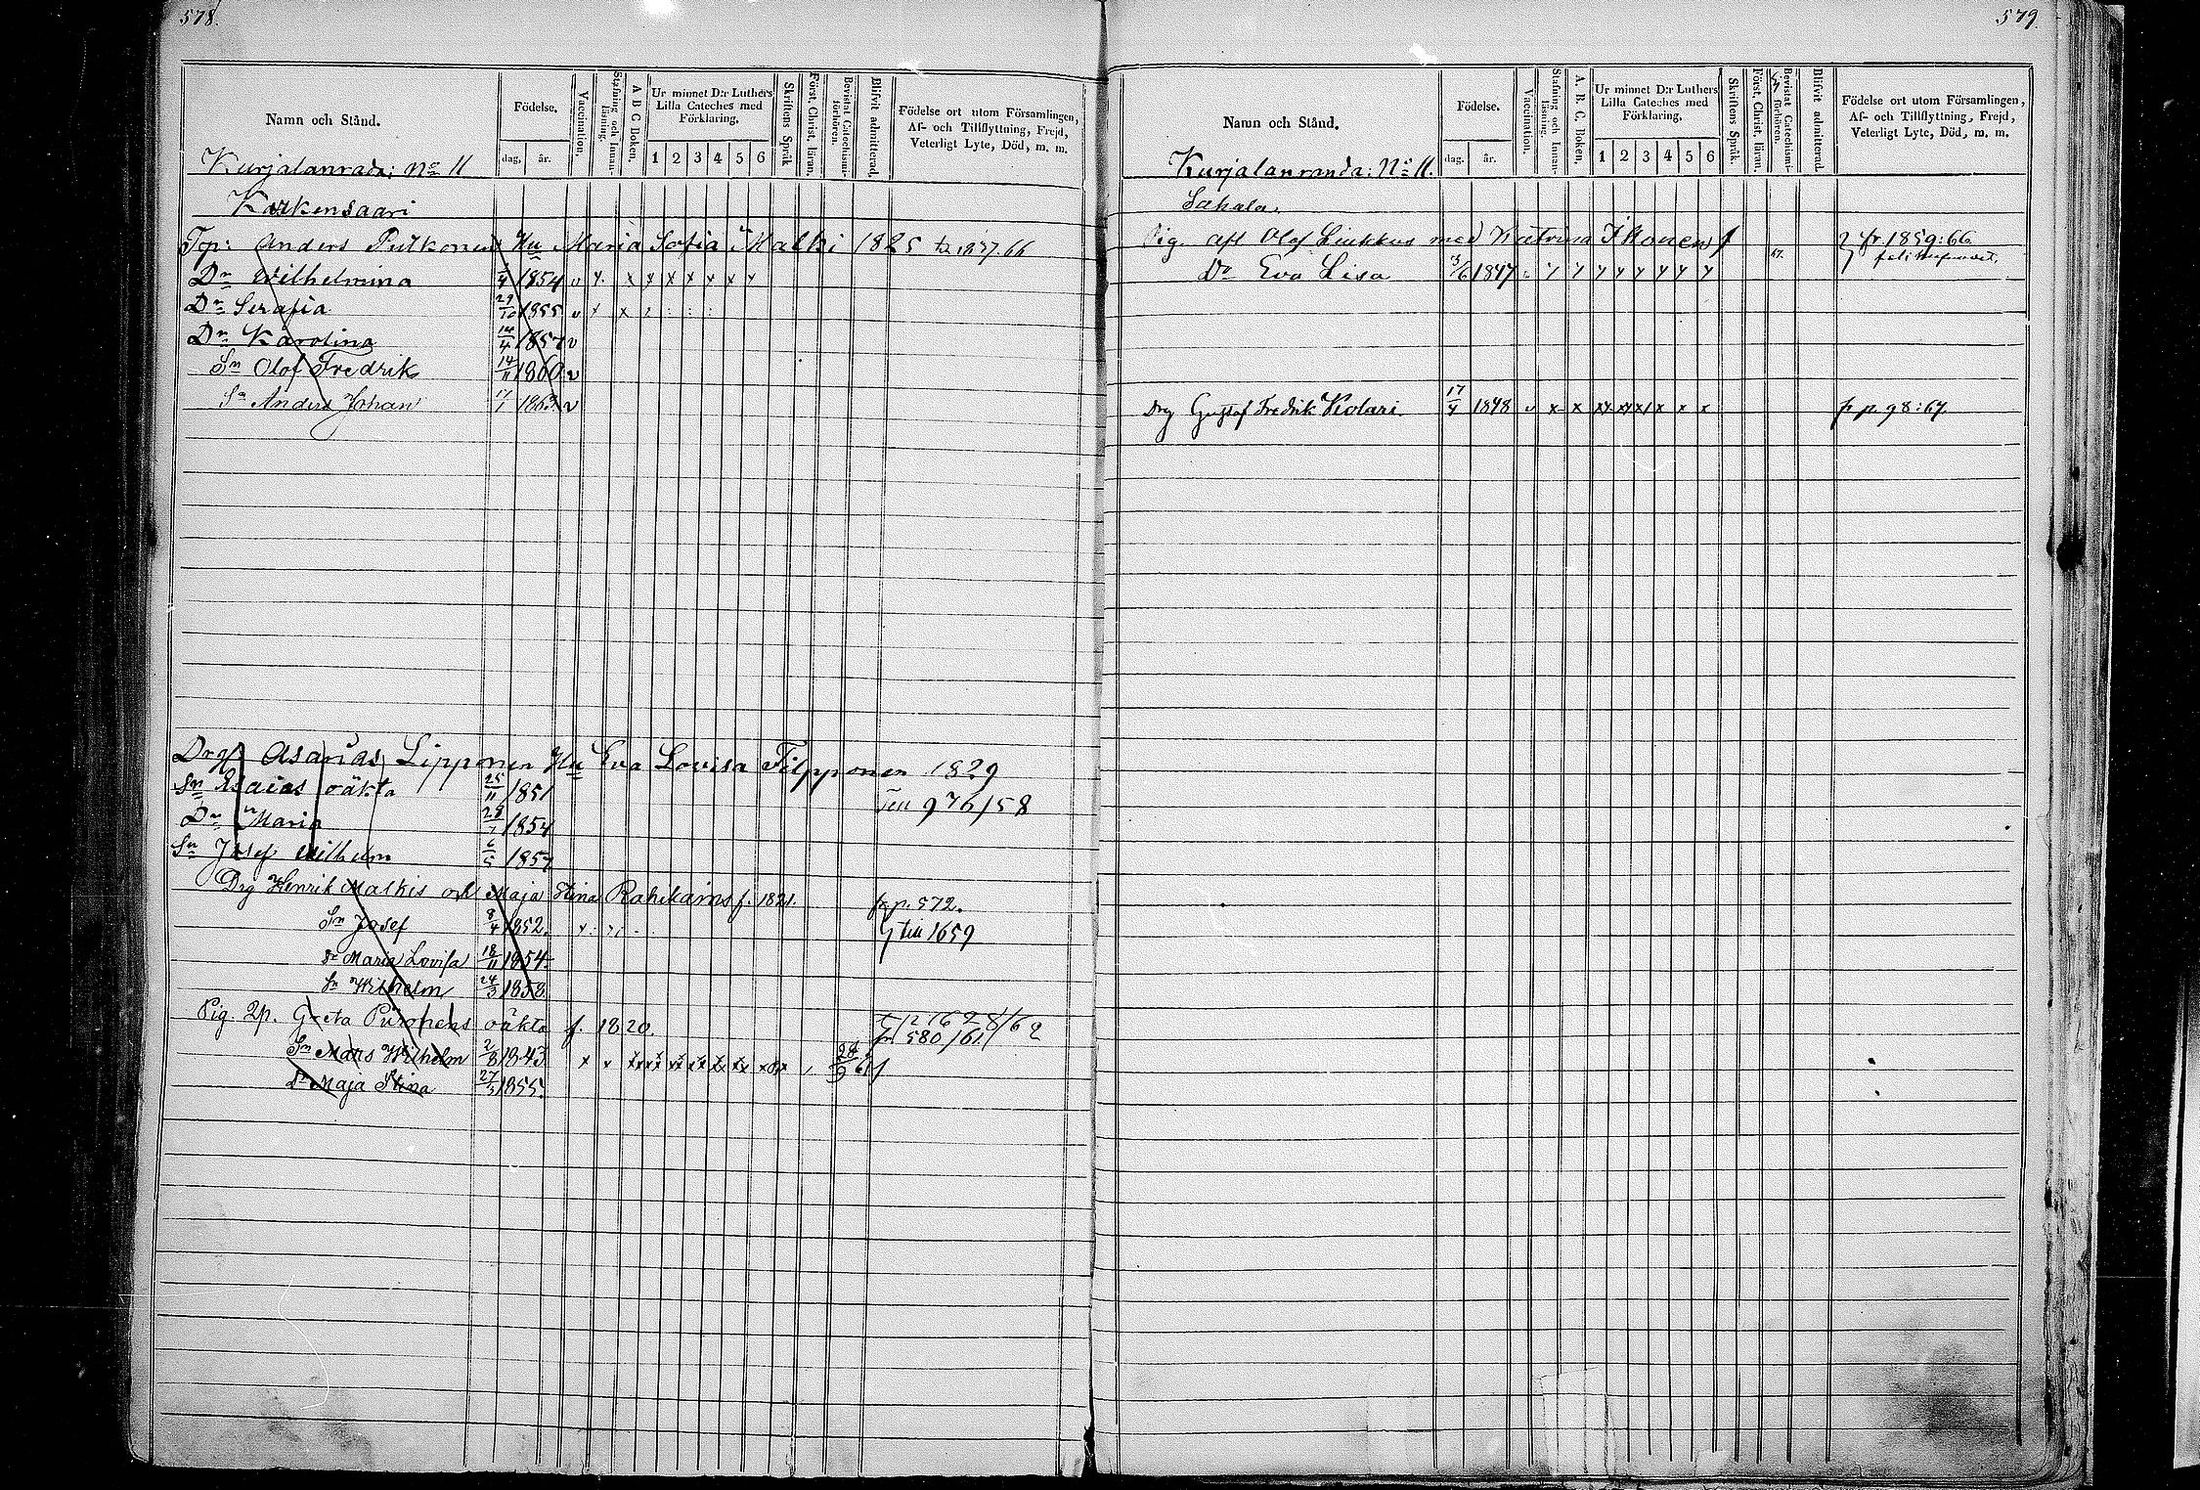 578.
Namn och Stånd.
Födelse.
dag. år.
Vaccination.
Stafning och Innan-läsning.
A B C Boken.
Ur minnet D:r Luthers Lilla Cateches med Förklaring.
1 2 3 4 5 6
Skriftens Språk
Först. Christ. läran.
Bevistat Catechismi-förhören.
Blifvit admitterad.
Födelse ort utom Församlingen, Af- och Tillflyttning, Frejd, Veterligt Lyte, Död, m. m.
Kurjalanrada: No 11
Karkensaari
Top: Anders Putkonen Hu Maria Sofia Malki 1825
Dr Wilhelmina 1854 v x x x x x x x x
Dr Serafia 29/10 1855 v x x
Dr Karolina 14/4 1857 v
Sn Olof Fredrik 14/11 1860 v
Sn Anders Johan 1863 v
Drg Asarias Lipponen Hu Eva Lovisa Filpponen 1829
Sn Esaias oäkta 25/11 1851 till 976/58
Dr Maria 1854
Sn Josef Wilhelm 1857
Drg Henrik Malkis och Maja Stina Rahikains f. 1821. fr p. 572.
Sn Josef 8/4 1852. till 1659
Dr Maria Lovisa 18/11 1854.
Sn Wilhelm 24/3 1858
Pig. 2p. Greta Puronens oäkta f. 1820.
fr 580/61
Sn Mats Wilhelm 2/8 1843
Dr Maja Stina 27/3 1855.
579.
Namn och Stånd.
Födelse.
dag. år.
Vaccination.
Stafning och Innan-läsning.
A. B. C. Boken,
Ur minnet D:r Luthers Lilla Cateches med Förklaring.
1 2 3 4 5 6
Skriftens Språk.
Först. Christ. läran.
Bevistat Catechismi-förhören.
Blifvit admitterad.
Födelse ort utom Församlingen, Af- och Tillflyttning, Frejd, Veterligt Lyte, Död, m. m.
Kurjalanranda: No 11.
Sakala.
Pig. afl Olof Liukkus med Katrina Ikonen fr 1859:66
Dr Eva Lisa 3/6 1847
Drg Gustaf Fredrik Kolari 17/4 1848 v x x x x x x x x fr p. 98:67.